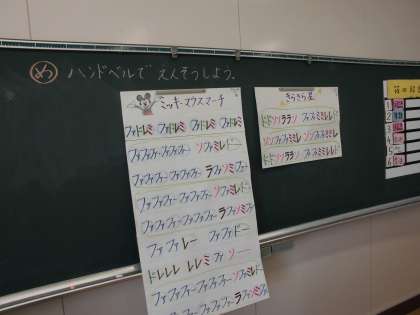 め ハンドベルで えんそうしよう。
ミッキーマウスマーチ
ファドレミ ファドレミ ファドレミ ファドレミ
ファファファー ファファファー ソファミレドー
ファファファー ファファファー ラファソミファー
ファファファー ファファファー ソファミレドー
ファファファー ファファファー ラファソミファー
ファファレー ファファドー
ドレレレ レレミファ ソー
ファファファー ファファファー ソファミレドー
ファファファー ファファファー ラファソミファー
きらきら星
ドドソソララソ ファファミミレレド
ソソファファミミレ ソソファファミミレ
ドドソソララソ ファファミミレレド
1
2
3
4
5
6